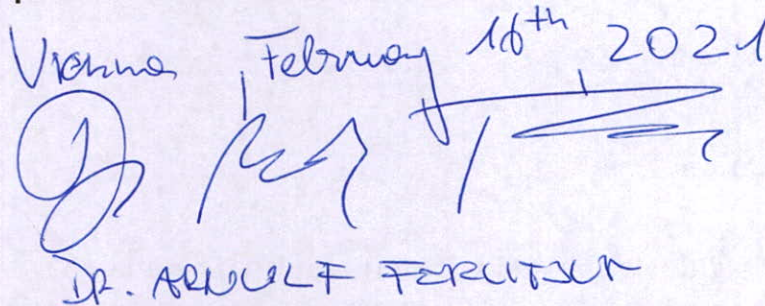 Vienna, February 16th 2021
DR. ARNULF FERLITSCH